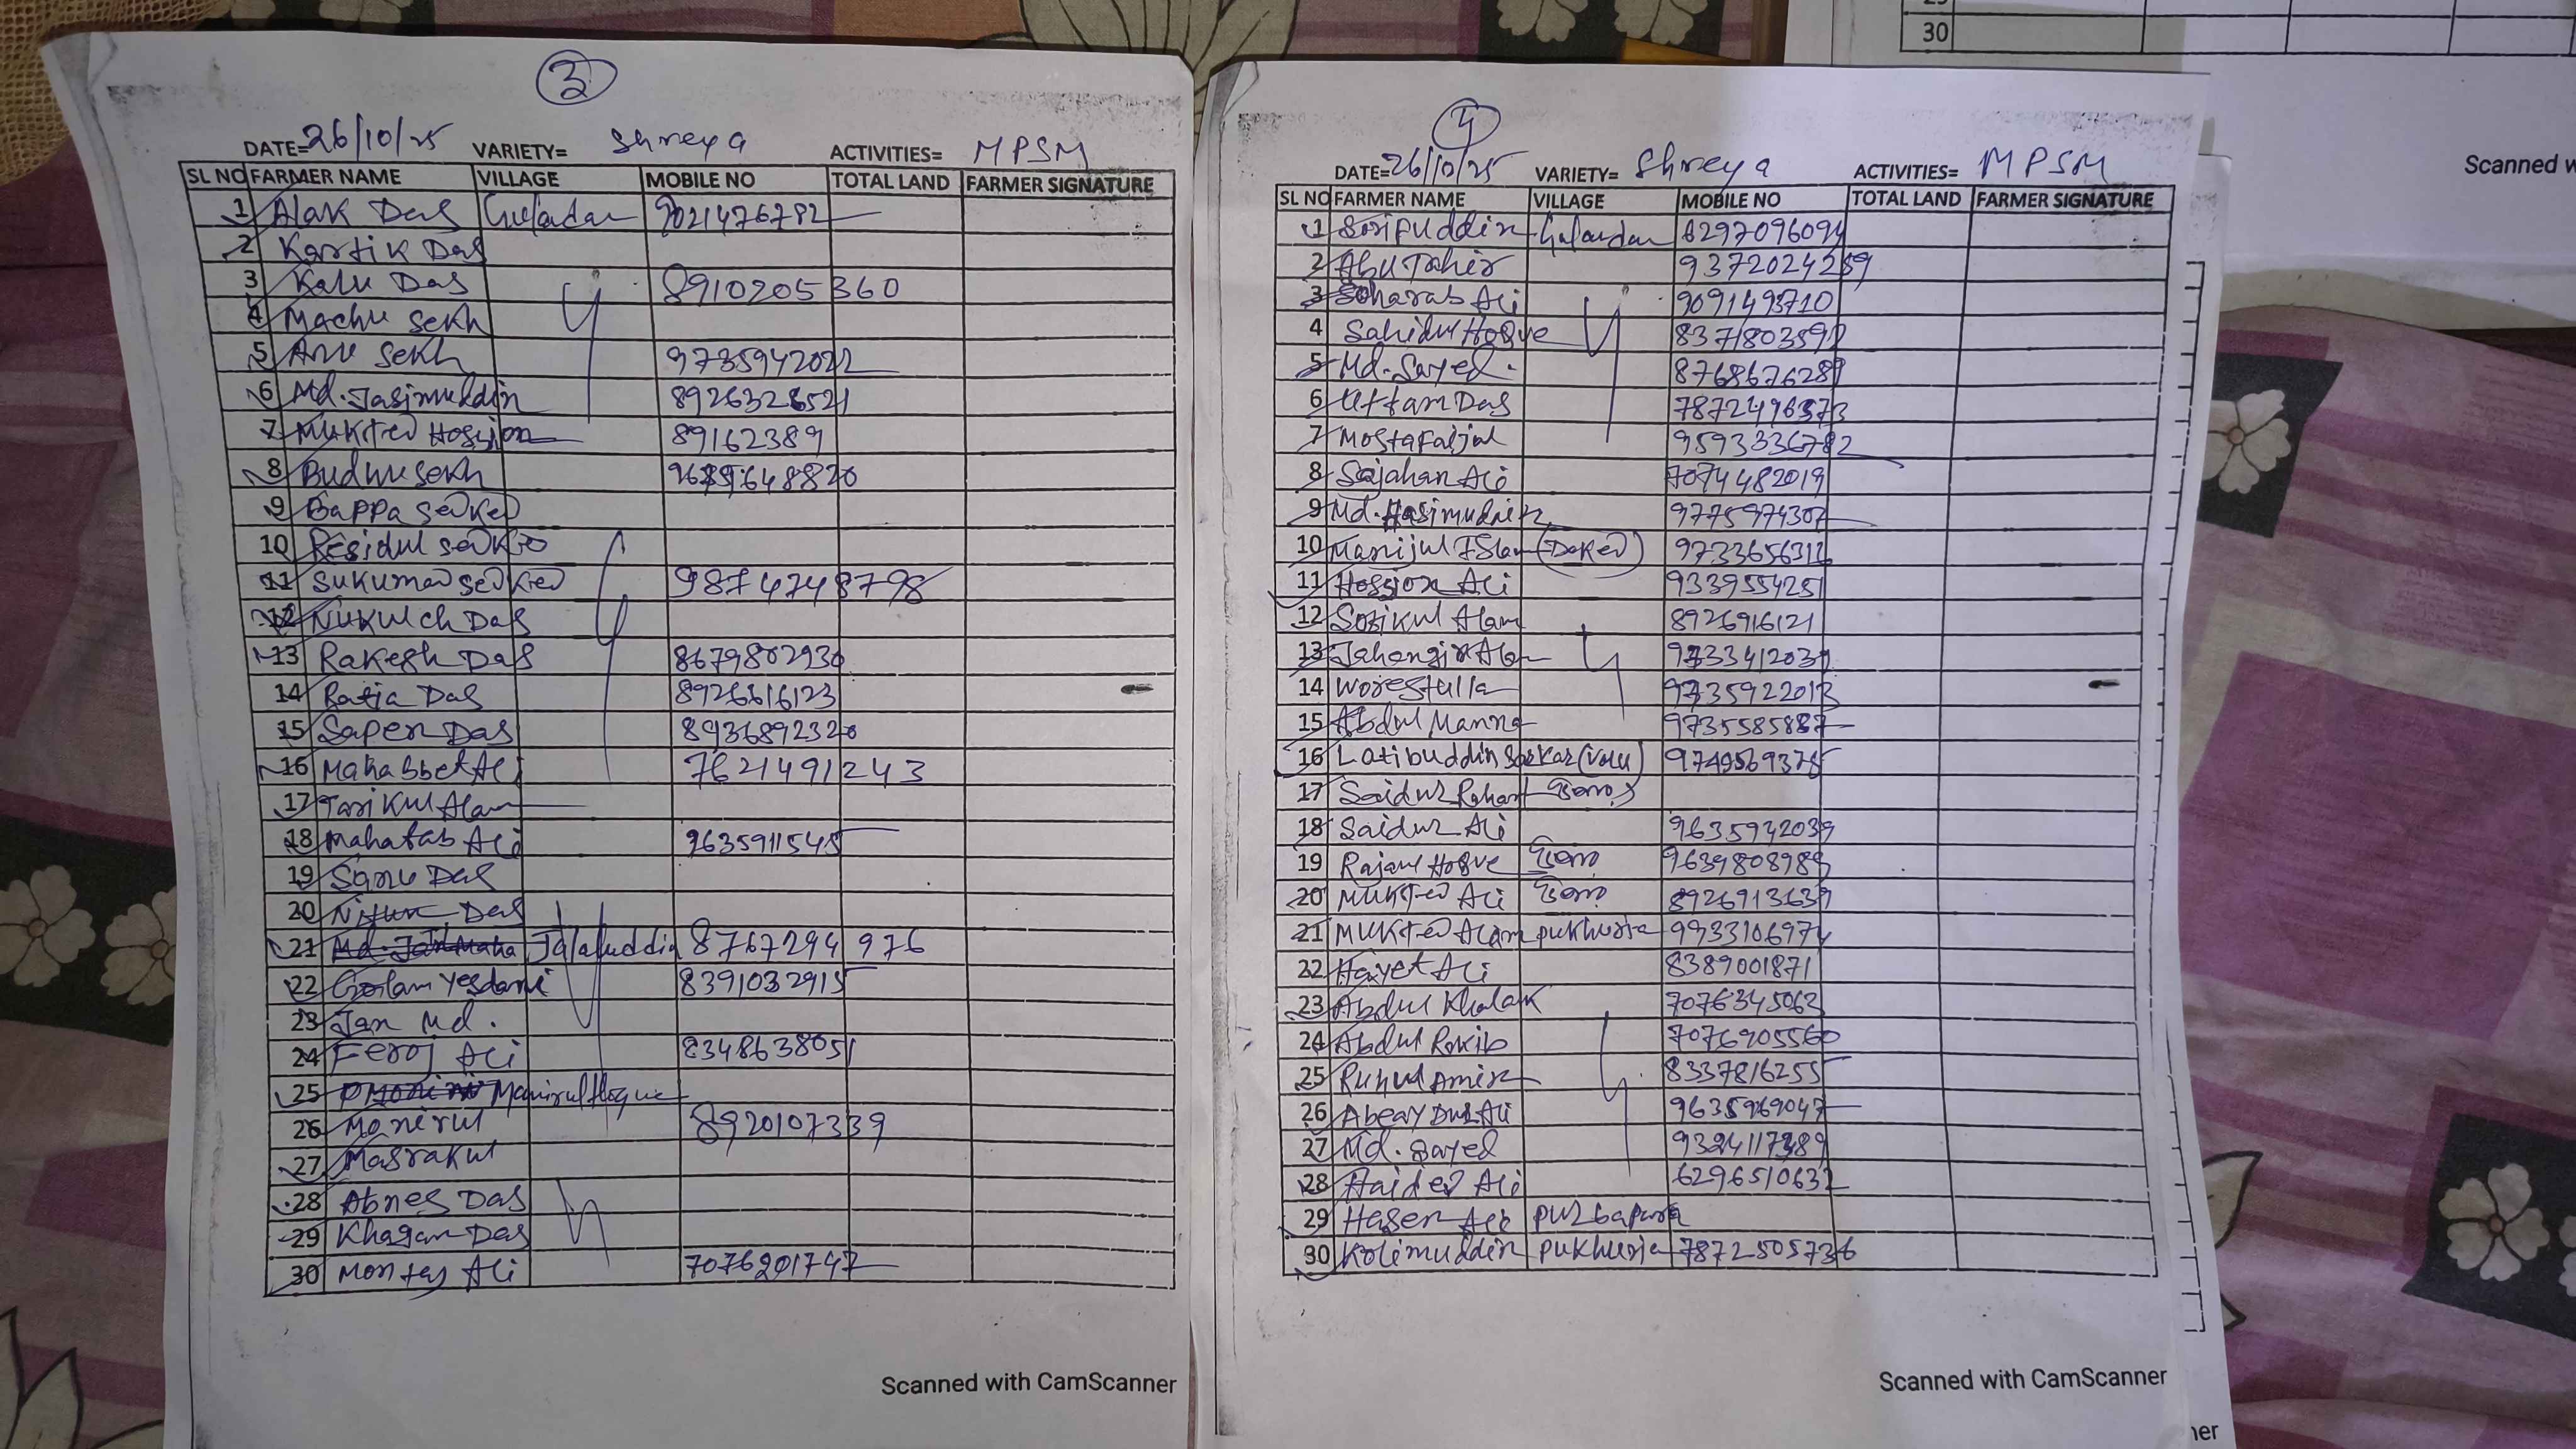 3
DATE= 26/10/25 VARIETY= Shreya ACTIVITIES= MPSM
SL NO FARMER NAME VILLAGE MOBILE NO TOTAL LAND FARMER SIGNATURE
1 Alak Das 9021476782
2 Kartik Das
3 Kalu Das 8910205360
4 Machu Sekh
5 Anu Sekh 9735942022
6 Md. Jasimuddin 8926326521
7 Hossion 89162389
8 Budhu Sekh
9 Bappa
10 Residul
11 Sukumar 9874748798
12 Nukul ch Das
13 Rakesh Das 8679802930
14 Ratia Das 8926616123
15 Sapen Das 8936892320
16 Mahabbet Ali 7621491243
17 Tarikul Alam
18 Mahatab Ali 9635911545
19 Sanu Das
20 Das
21 Jalaluddin 8767294976
22 Golam Yesdani 8391032915
23 Jan Md.
24 Feroj Ali 8348638051
25 Manirul Hoque
26 Manirul 8920107339
27 Masrakul
28 Abnes Das
29 Khagan Das
30 Montaj Ali 7076201747
Scanned with CamScanner
4
DATE= 26/10/25 VARIETY= Shreya ACTIVITIES= MPSM
SL NO FARMER NAME VILLAGE MOBILE NO TOTAL LAND FARMER SIGNATURE
1 Soripuddin 8297096094
2 Abu Taher 9372024259
3 Soharab Ali 9091495710
4 Sahidul Hoque
5 Md. Sayed. 8768676289
6 Uttam Das
7 Mostafaijul 9593336782
8 Sajahan Ali 7074482019
9 Md. Hasimuddin 9775974307
10 Manijul Islam
11 Hossion Ali 9339554251
12 Sofikul Alam 8926916121
13 Jahangir Alam 9733412039
14 Worestulla
15 Abdul Manna 9735585887
16 Latibuddin Sarkar
17 Saidur Rahan
18 Saidur Ali 9635942039
19 Rajaul Hoque
20 Mukter Ali 8926913639
21 Mukter Alam pukhuria 9933106974
22 Hayet Ali 8389001871
23 Abdul Khalak 7076345063
24 Abdul Rakib 7076905560
25 Ruhul Amin 8337816255
26 Ali
27 Md. Sayed
28 Haider Ali 6296510632
29 Hasen Ali purbapara
30 Kolimuddin pukhuria 7872505736
Scanned with CamScanner
30
Scanned w
ner